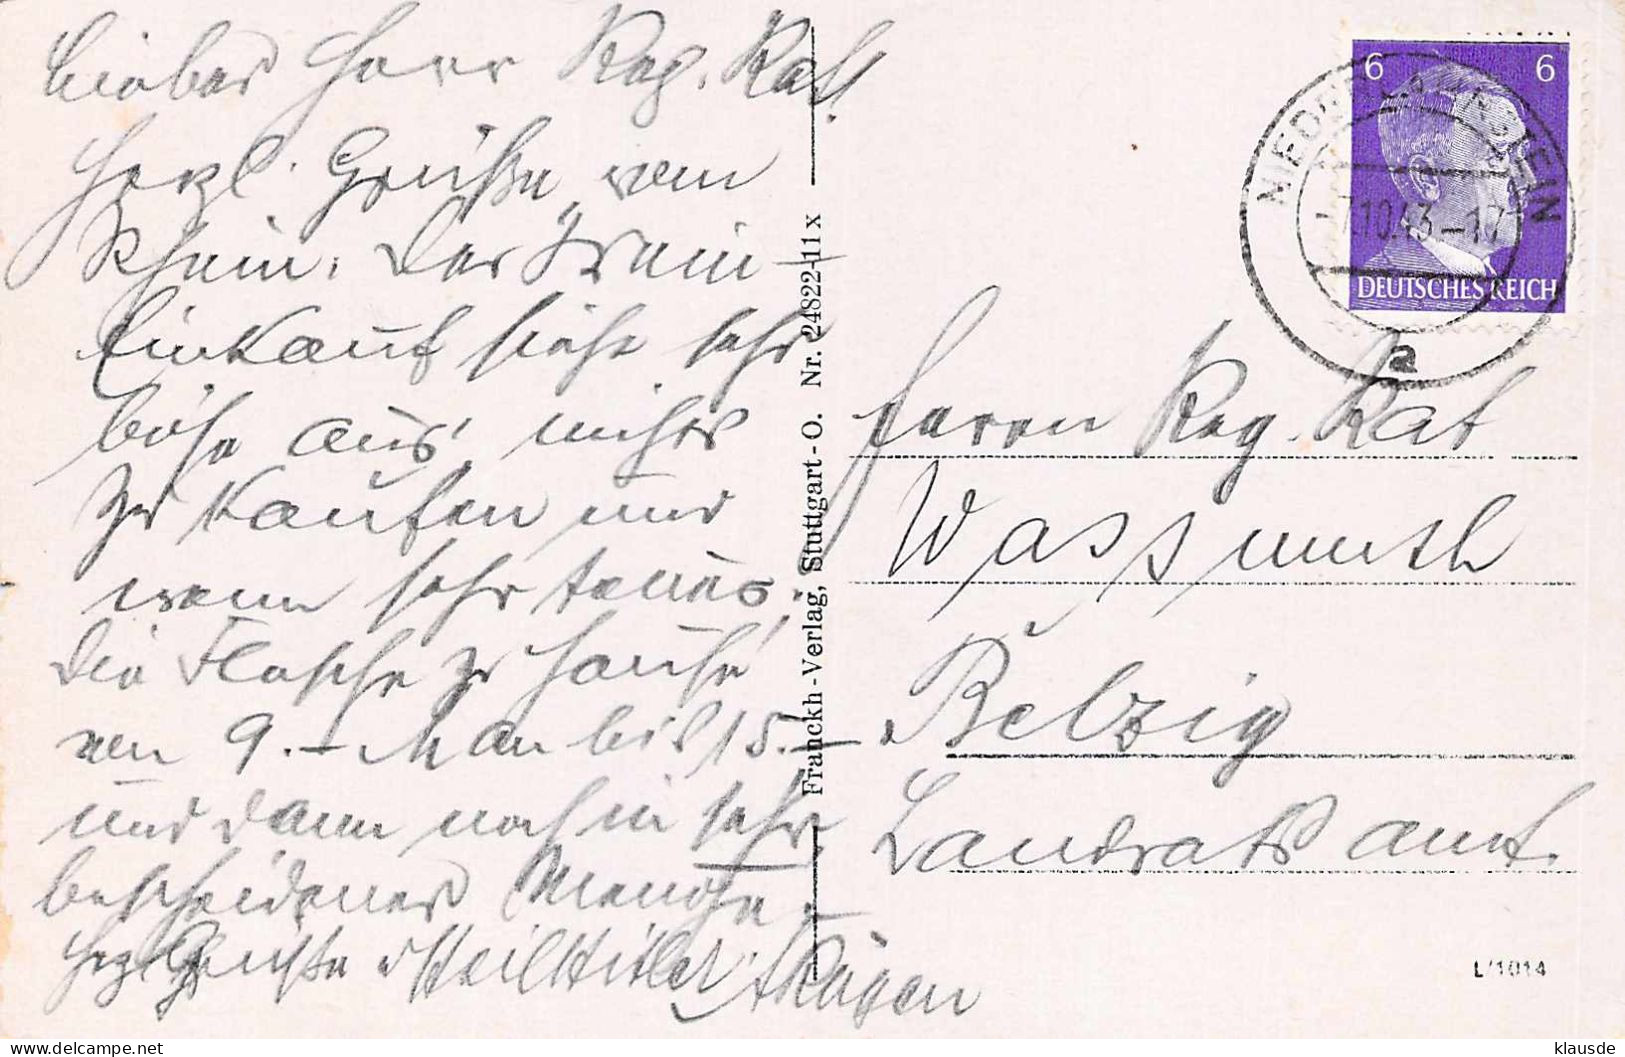 Lieber Herr Reg. Rat!
Herzl. Grüße vom
Rhein. Der Wein-
Einkauf sieht sehr
böse aus, nichts
zu kaufen und
wenn sehr teuer.
Die Flasche zu Hause
von 9.– Man bis 15.–
und dann noch in sehr
bescheidener Menge.
Herzl Grüße u Heil Hitler
Franckh-Verlag, Stuttgart-O. Nr. 24822-11x
6 6
DEUTSCHES REICH
10.43-17
a
Herrn Reg. Rat
Wassmuth
Belzig
Landratsamt.
L/1014
www.delcampe.net
klausde